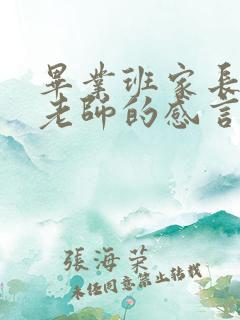 畢業班家長
老師的感言
張海荣
未经同意禁止转载